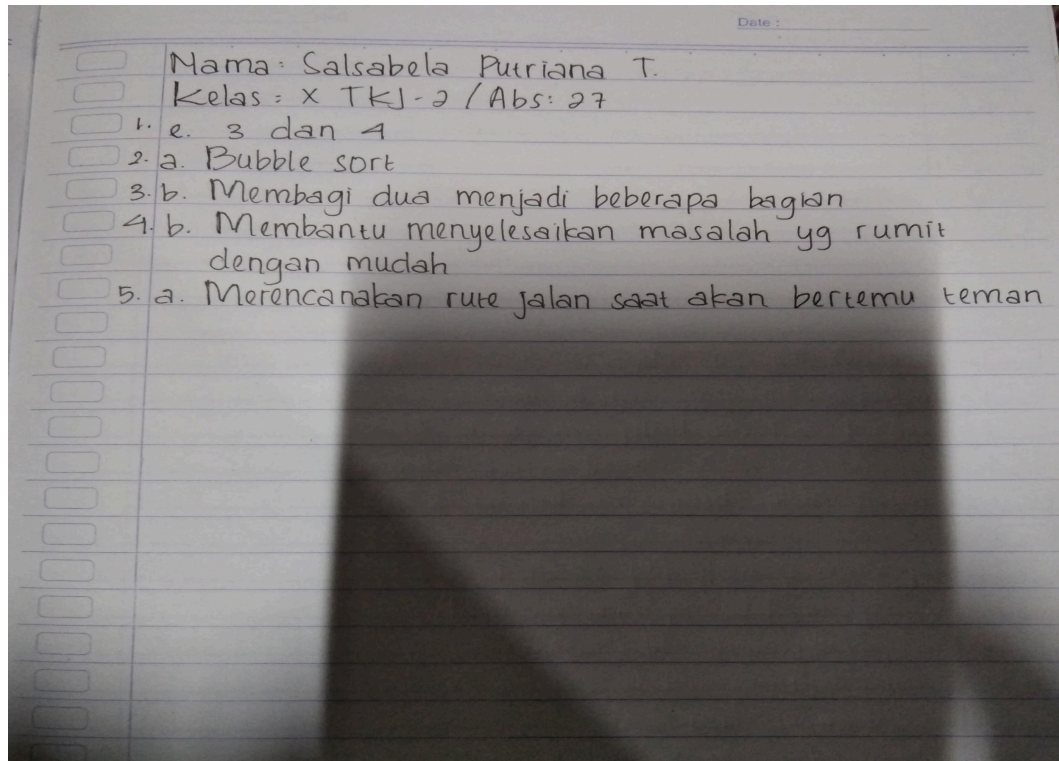 Date :
Nama : Salsabela Putriana T.
Kelas : X TKJ-2 / Abs: 27
1. e. 3 dan 4
2. a. Bubble sort
3. b. Membagi dua menjadi beberapa bagian
4. b. Membantu menyelesaikan masalah yg rumit
dengan mudah
5. a. Merencanakan rute jalan saat akan bertemu teman